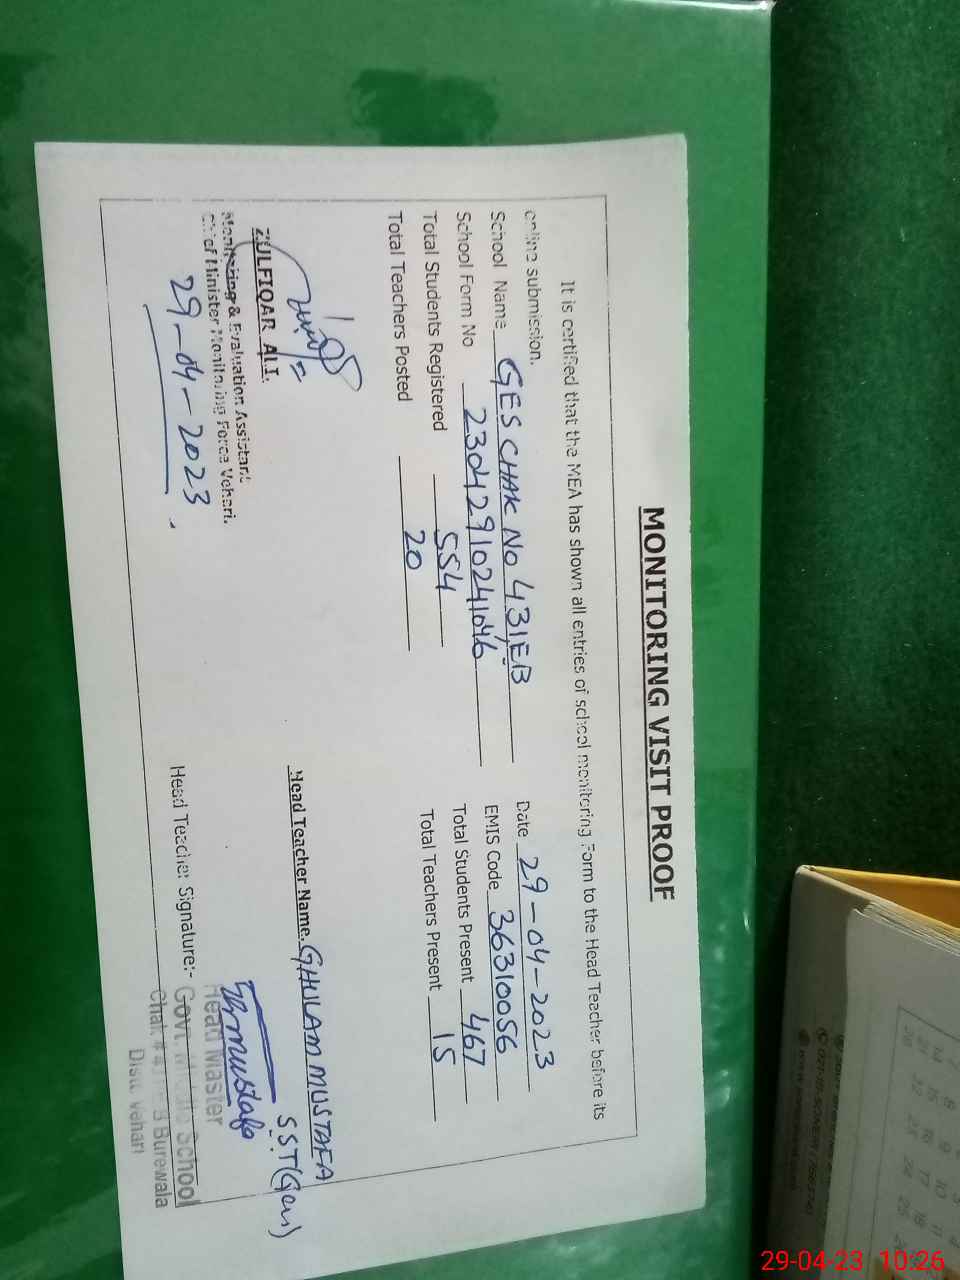 MONITORING VISIT PROOF
It is certified that the MEA has shown all entries of school monitoring Form to the Head Teacher before its
online submission.
School Name GES CHAK NO 431,EB Date 29-04-2023
School Form No 23042910241046 EMIS Code 36310056
Total Students Registered 554 Total Students Present 467
Total Teachers Posted 20 Total Teachers Present 15
ZULFIQAR ALI.
Monitoring & Evaluation Assistant
Chief Minister Monitoring Force Vehari.
29-04-2023.
Head Teacher Name. GHULAM MUSTAFA
SST(Gen)
Head Teacher Signature:-
Head Master
Govt. Middle School
Chak # Burewala
Distt. Vehari
29-04-23 10:26